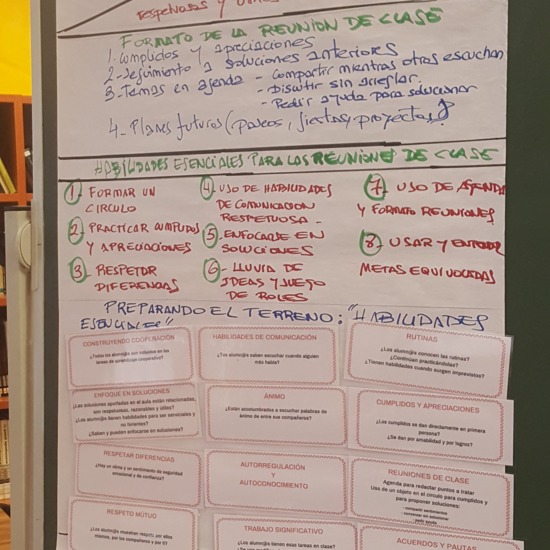 respetuosas y
FORMATO DE LA REUNIÓN DE CLASE
1. Cumplidos y apreciaciones
2- Seguimiento a soluciones anteriores
3. Temas en agenda - Compartir mientras otros escuchan
- Discutir sin arreglar.
- Pedir ayuda para solucionar
4- Planes futuros (paseos, fiestas, proyectos)
HABILIDADES ESENCIALES PARA LAS REUNIONES DE CLASE
1- FORMAR UN
CIRCULO
2- PRACTICAR CUMPLIDOS
Y APRECIACIONES
3- RESPETAR
DIFERENCIAS
4- USO DE HABILIDADES
DE COMUNICACION
RESPETUOSA -
5- ENFOCARSE EN
SOLUCIONES
6- LLUVIA DE
IDEAS Y JUEGO
DE ROLES
7- USO DE AGENDA
Y FORMATO REUNIONES
8- USAR Y ENTENDER
METAS EQUIVOCADAS
PREPARANDO EL TERRENO: "HABILIDADES
ESENCIALES"
CONSTRUYENDO COOPERACIÓN
¿Todos los alumn@s son incluidos en las
tareas de aprendizaje cooperativo?
HABILIDADES DE COMUNICACIÓN
¿Tus alumn@s saben escuchar cuando alguien
más habla?
RUTINAS
¿Los alumn@s conocen las rutinas?
¿Continúan practicándolas?
¿Tienen habilidades cuando surgen imprevistos?
ENFOQUE EN SOLUCIONES
¿Las soluciones aportadas en el aula están relacionadas,
son respetuosas, razonables y útiles?
¿Los alumn@s tienen habilidades para ser serviciales y
no hirientes?
¿Saben y pueden enfocarse en soluciones?
ÁNIMO
¿Están acostumbrados a escuchar palabras de
ánimo de entre sus compañeros?
CUMPLIDOS Y APRECIACIONES
¿Los cumplidos se dan directamente en primera
persona?
¿Se dan por amabilidad y por logros?
RESPETAR DIFERENCIAS
¿Hay un clima y un sentimiento de seguridad
emocional y de confianza?
AUTORREGULACIÓN
Y
AUTOCONOCIMIENTO
REUNIONES DE CLASE
Agenda para redactar puntos a tratar
Uso de un objeto en el círculo para cumplidos y
para proponer soluciones:
- compartir sentimientos
- pedir ayuda
RESPETO MÚTUO
¿Los alumn@s muestran respeto por ellos
mismos, por los compañeros y por ti?
TRABAJO SIGNIFICATIVO
¿Los alumn@s tienen esas tareas en clase?
ACUERDOS Y PAUTAS